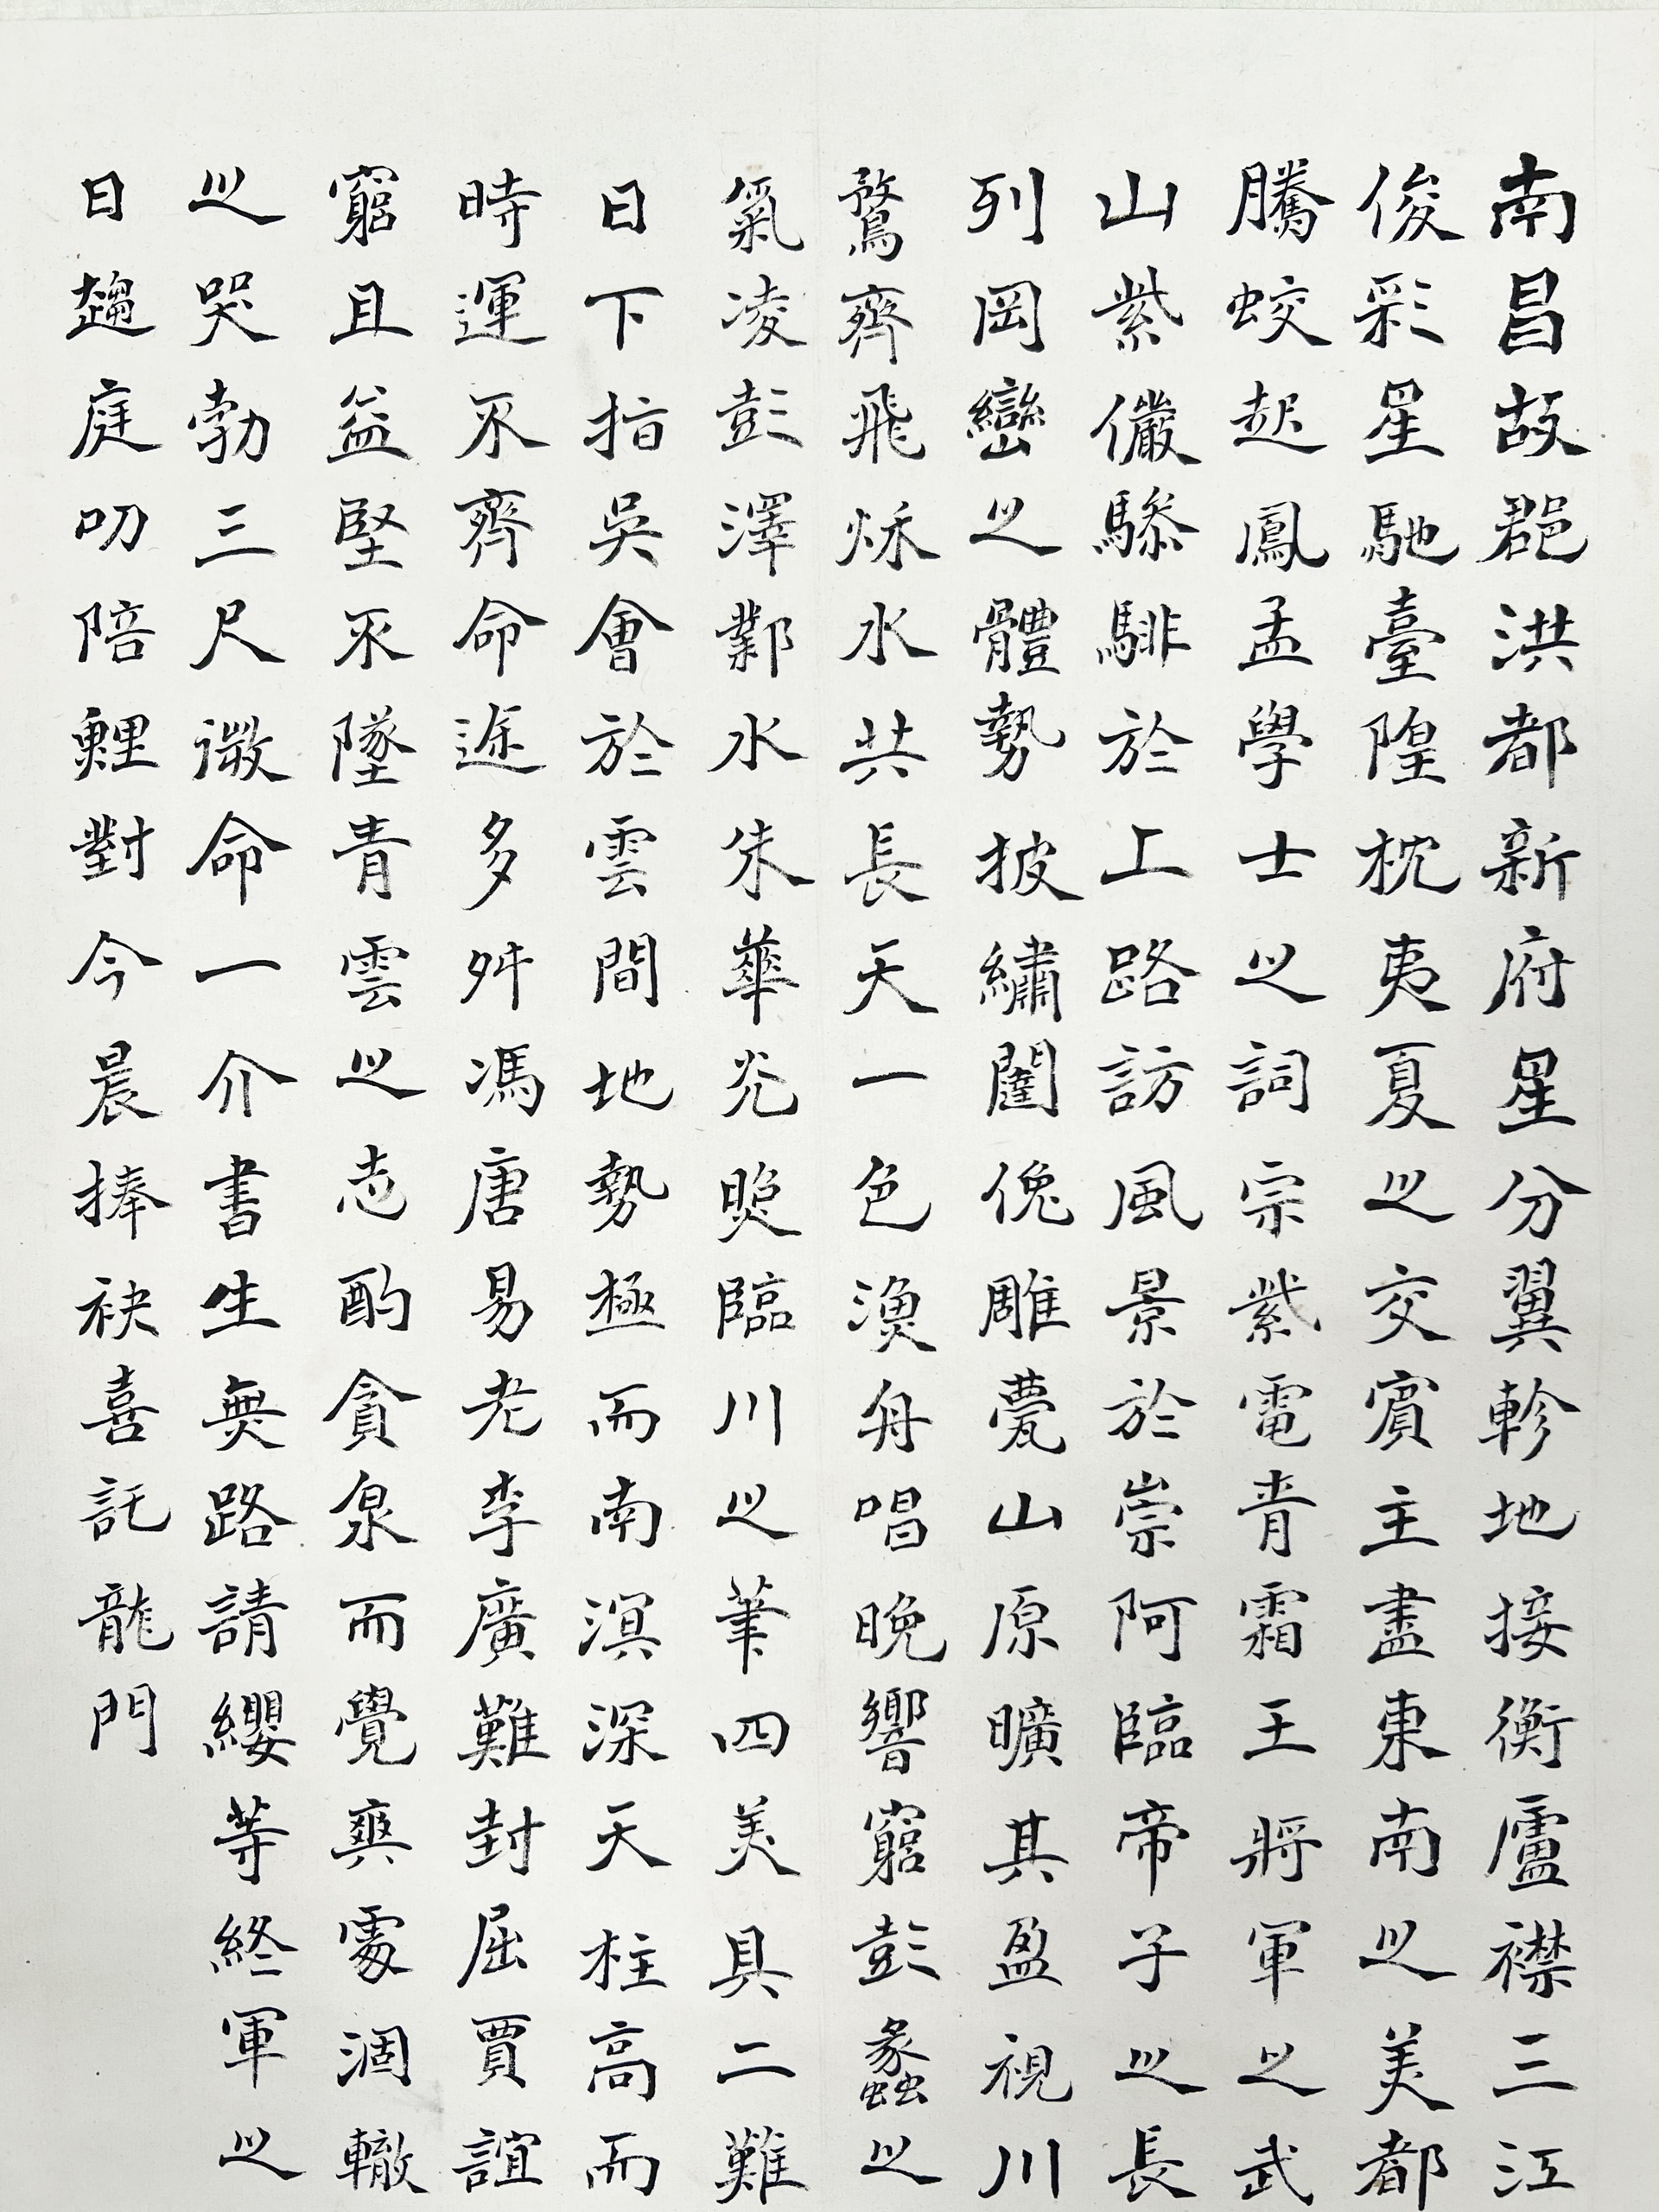 南昌故郡洪都新府星分翼軫地接衡廬襟三江
俊彩星馳臺隍枕夷夏之交賓主盡東南之美都
騰蛟起鳳孟學士之詞宗紫電青霜王將軍之武
山紫儼驂騑於上路訪風景於崇阿臨帝子之長
列岡巒之體勢披繡闥俛雕甍山原曠其盈視川
鶩齊飛秌水共長天一色漁舟唱晚響窮彭蠡之
氣凌彭澤鄴水朱華光照臨川之筆四美具二難
日下指吳會於雲間地勢極而南溟深天柱高而
時運不齊命途多舛馮唐易老李廣難封屈賈誼
窮且益堅不墜青雲之志酌貪泉而覺爽處涸轍
之哭勃三尺微命一介書生無路請纓等終軍之
日趨庭叨陪鯉對今晨捧袂喜託龍門